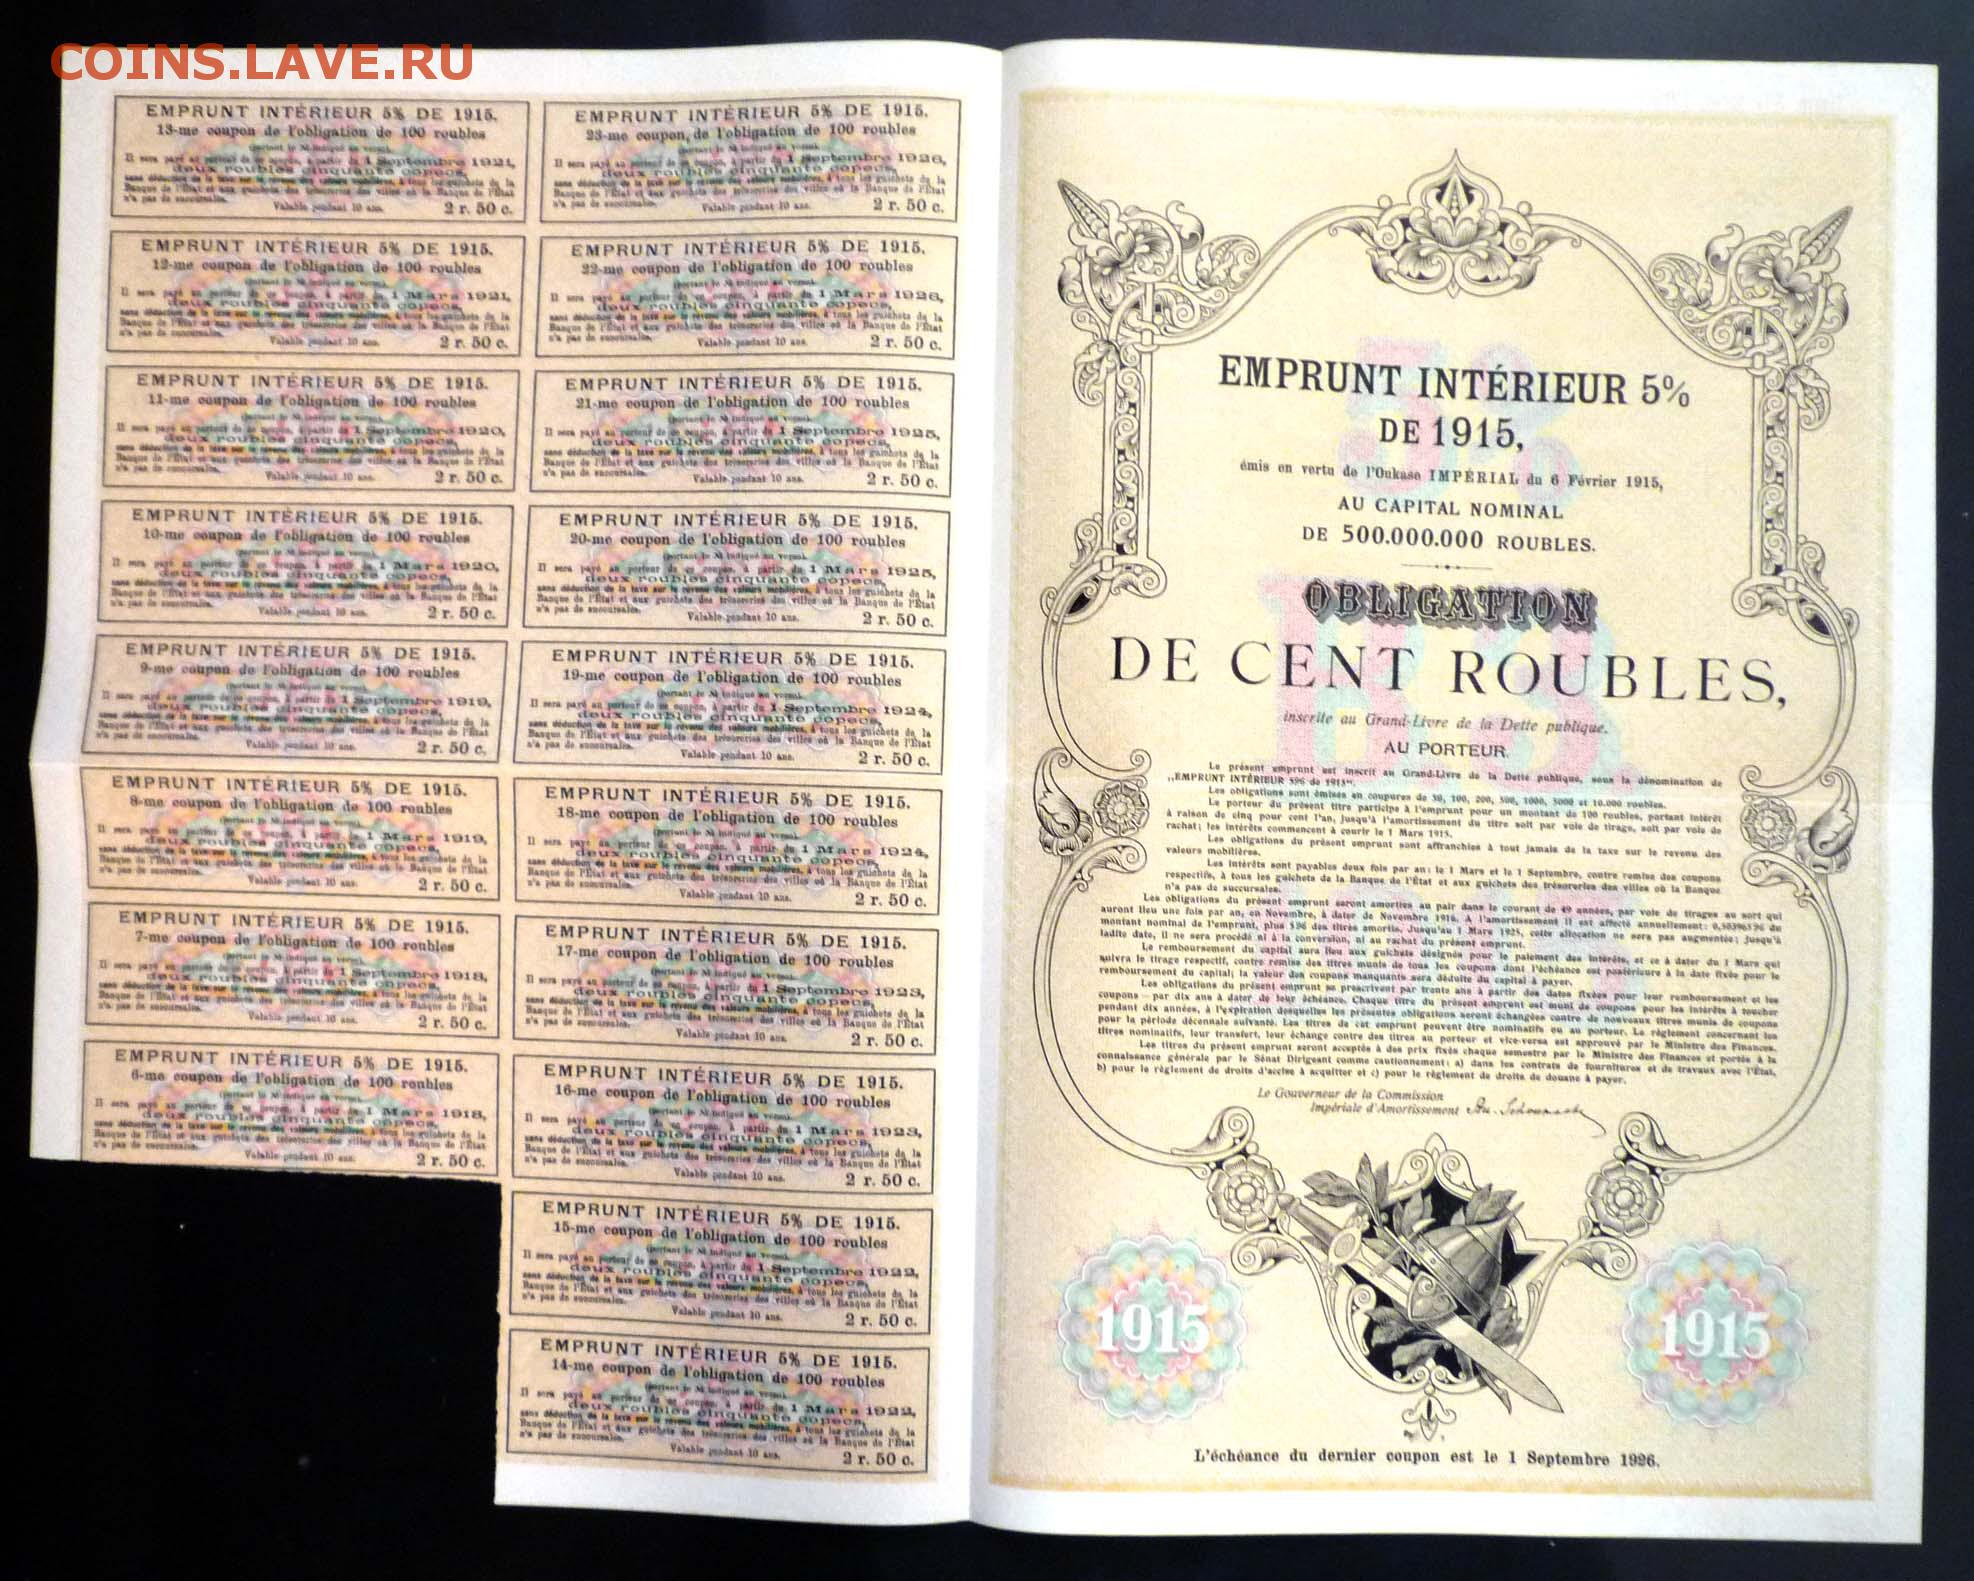 COINS.LAVE.RU
EMPRUNT INTÉRIEUR 5% DE 1915.
13-me coupon de l'obligation de 100 roubles
(portant le № indiqué au verso).
Il sera payé au porteur de ce coupon, à partir du 1 Septembre 1921,
deux roubles cinquante copecs,
sans déduction de la taxe sur le revenu des valeurs mobilières, à tous les guichets de la
Banque de l'État et aux guichets des trésoreries des villes où la Banque de l'État
n'a pas de succursales.
Valable pendant 10 ans.
2 r. 50 c.
EMPRUNT INTÉRIEUR 5% DE 1915.
12-me coupon de l'obligation de 100 roubles
(portant le № indiqué au verso).
Il sera payé au porteur de ce coupon, à partir du 1 Mars 1921,
deux roubles cinquante copecs,
sans déduction de la taxe sur le revenu des valeurs mobilières, à tous les guichets de la
Banque de l'État et aux guichets des trésoreries des villes où la Banque de l'État
n'a pas de succursales.
Valable pendant 10 ans.
2 r. 50 c.
EMPRUNT INTÉRIEUR 5% DE 1915.
11-me coupon de l'obligation de 100 roubles
(portant le № indiqué au verso).
Il sera payé au porteur de ce coupon, à partir du 1 Septembre 1920,
deux roubles cinquante copecs,
sans déduction de la taxe sur le revenu des valeurs mobilières, à tous les guichets de la
Banque de l'État et aux guichets des trésoreries des villes où la Banque de l'État
n'a pas de succursales.
Valable pendant 10 ans.
2 r. 50 c.
EMPRUNT INTÉRIEUR 5% DE 1915.
10-me coupon de l'obligation de 100 roubles
(portant le № indiqué au verso).
Il sera payé au porteur de ce coupon, à partir du 1 Mars 1920,
deux roubles cinquante copecs,
sans déduction de la taxe sur le revenu des valeurs mobilières, à tous les guichets de la
Banque de l'État et aux guichets des trésoreries des villes où la Banque de l'État
n'a pas de succursales.
Valable pendant 10 ans.
2 r. 50 c.
EMPRUNT INTÉRIEUR 5% DE 1915.
9-me coupon de l'obligation de 100 roubles
(portant le № indiqué au verso).
Il sera payé au porteur de ce coupon, à partir du 1 Septembre 1919,
deux roubles cinquante copecs,
sans déduction de la taxe sur le revenu des valeurs mobilières, à tous les guichets de la
Banque de l'État et aux guichets des trésoreries des villes où la Banque de l'État
n'a pas de succursales.
Valable pendant 10 ans.
2 r. 50 c.
EMPRUNT INTÉRIEUR 5% DE 1915.
8-me coupon de l'obligation de 100 roubles
(portant le № indiqué au verso).
Il sera payé au porteur de ce coupon, à partir du 1 Mars 1919,
deux roubles cinquante copecs,
sans déduction de la taxe sur le revenu des valeurs mobilières, à tous les guichets de la
Banque de l'État et aux guichets des trésoreries des villes où la Banque de l'État
n'a pas de succursales.
Valable pendant 10 ans.
2 r. 50 c.
EMPRUNT INTÉRIEUR 5% DE 1915.
7-me coupon de l'obligation de 100 roubles
(portant le № indiqué au verso).
Il sera payé au porteur de ce coupon, à partir du 1 Septembre 1918,
deux roubles cinquante copecs,
sans déduction de la taxe sur le revenu des valeurs mobilières, à tous les guichets de la
Banque de l'État et aux guichets des trésoreries des villes où la Banque de l'État
n'a pas de succursales.
Valable pendant 10 ans.
2 r. 50 c.
EMPRUNT INTÉRIEUR 5% DE 1915.
6-me coupon de l'obligation de 100 roubles
(portant le № indiqué au verso).
Il sera payé au porteur de ce coupon, à partir du 1 Mars 1918,
deux roubles cinquante copecs,
sans déduction de la taxe sur le revenu des valeurs mobilières, à tous les guichets de la
Banque de l'État et aux guichets des trésoreries des villes où la Banque de l'État
n'a pas de succursales.
Valable pendant 10 ans.
2 r. 50 c.
EMPRUNT INTÉRIEUR 5% DE 1915.
23-me coupon, de l'obligation de 100 roubles
(portant le № indiqué au verso).
Il sera payé au porteur de ce coupon, à partir du 1 Septembre 1926,
deux roubles cinquante copecs,
sans déduction de la taxe sur le revenu des valeurs mobilières, à tous les guichets de la
Banque de l'État et aux guichets des trésoreries des villes où la Banque de l'État
n'a pas de succursales.
Valable pendant 10 ans.
2 r. 50 c.
EMPRUNT INTÉRIEUR 5% DE 1915.
22-me coupon de l'obligation de 100 roubles
(portant le № indiqué au verso).
Il sera payé au porteur de ce coupon, à partir du 1 Mars 1926,
deux roubles cinquante copecs,
sans déduction de la taxe sur le revenu des valeurs mobilières, à tous les guichets de la
Banque de l'État et aux guichets des trésoreries des villes où la Banque de l'État
n'a pas de succursales.
Valable pendant 10 ans.
2 r. 50 c.
EMPRUNT INTÉRIEUR 5% DE 1915.
21-me coupon de l'obligation de 100 roubles
(portant le № indiqué au verso).
Il sera payé au porteur de ce coupon, à partir du 1 Septembre 1925,
deux roubles cinquante copecs,
sans déduction de la taxe sur le revenu des valeurs mobilières, à tous les guichets de la
Banque de l'État et aux guichets des trésoreries des villes où la Banque de l'État
n'a pas de succursales.
Valable pendant 10 ans.
2 r. 50 c.
EMPRUNT INTÉRIEUR 5% DE 1915.
20-me coupon de l'obligation de 100 roubles
(portant le № indiqué au verso).
Il sera payé au porteur de ce coupon, à partir du 1 Mars 1925,
deux roubles cinquante copecs,
sans déduction de la taxe sur le revenu des valeurs mobilières, à tous les guichets de la
Banque de l'État et aux guichets des trésoreries des villes où la Banque de l'État
n'a pas de succursales.
Valable pendant 10 ans.
2 r. 50 c.
EMPRUNT INTÉRIEUR 5% DE 1915.
19-me coupon de l'obligation de 100 roubles
(portant le № indiqué au verso).
Il sera payé au porteur de ce coupon, à partir du 1 Septembre 1924,
deux roubles cinquante copecs,
sans déduction de la taxe sur le revenu des valeurs mobilières, à tous les guichets de la
Banque de l'État et aux guichets des trésoreries des villes où la Banque de l'État
n'a pas de succursales.
Valable pendant 10 ans.
2 r. 50 c.
EMPRUNT INTÉRIEUR 5% DE 1915.
18-me coupon de l'obligation de 100 roubles
(portant le № indiqué au verso).
Il sera payé au porteur de ce coupon, à partir du 1 Mars 1924,
deux roubles cinquante copecs,
sans déduction de la taxe sur le revenu des valeurs mobilières, à tous les guichets de la
Banque de l'État et aux guichets des trésoreries des villes où la Banque de l'État
n'a pas de succursales.
Valable pendant 10 ans.
2 r. 50 c.
EMPRUNT INTÉRIEUR 5% DE 1915.
17-me coupon de l'obligation de 100 roubles
(portant le № indiqué au verso).
Il sera payé au porteur de ce coupon, à partir du 1 Septembre 1923,
deux roubles cinquante copecs,
sans déduction de la taxe sur le revenu des valeurs mobilières, à tous les guichets de la
Banque de l'État et aux guichets des trésoreries des villes où la Banque de l'État
n'a pas de succursales.
Valable pendant 10 ans.
2 r. 50 c.
EMPRUNT INTÉRIEUR 5% DE 1915.
16-me coupon de l'obligation de 100 roubles
(portant le № indiqué au verso).
Il sera payé au porteur de ce coupon, à partir du 1 Mars 1923,
deux roubles cinquante copecs,
sans déduction de la taxe sur le revenu des valeurs mobilières, à tous les guichets de la
Banque de l'État et aux guichets des trésoreries des villes où la Banque de l'État
n'a pas de succursales.
Valable pendant 10 ans.
2 r. 50 c.
EMPRUNT INTÉRIEUR 5% DE 1915.
15-me coupon de l'obligation de 100 roubles
(portant le № indiqué au verso).
Il sera payé au porteur de ce coupon, à partir du 1 Septembre 1922,
deux roubles cinquante copecs,
sans déduction de la taxe sur le revenu des valeurs mobilières, à tous les guichets de la
Banque de l'État et aux guichets des trésoreries des villes où la Banque de l'État
n'a pas de succursales.
Valable pendant 10 ans.
2 r. 50 c.
EMPRUNT INTÉRIEUR 5% DE 1915.
14-me coupon de l'obligation de 100 roubles
(portant le № indiqué au verso).
Il sera payé au porteur de ce coupon, à partir du 1 Mars 1922,
deux roubles cinquante copecs,
sans déduction de la taxe sur le revenu des valeurs mobilières, à tous les guichets de la
Banque de l'État et aux guichets des trésoreries des villes où la Banque de l'État
n'a pas de succursales.
Valable pendant 10 ans.
2 r. 50 c.
EMPRUNT INTÉRIEUR 5%
DE 1915,
émis en vertu de l'Oukase IMPÉRIAL du 6 Février 1915,
AU CAPITAL NOMINAL
DE 500.000.000 ROUBLES.
OBLIGATION
DE CENT ROUBLES,
inscrite au Grand-Livre de la Dette publique.
AU PORTEUR.
Le présent emprunt est inscrit au Grand-Livre de la Dette publique, sous la dénomination de
„EMPRUNT INTÉRIEUR 5% de 1915".
Les obligations sont émises en coupures de 50, 100, 200, 500, 1000, 5000 et 10.000 roubles.
Le porteur du présent titre participe à l'emprunt pour un montant de 100 roubles, portant intérêt
à raison de cinq pour cent l'an, jusqu'à l'amortissement du titre soit par voie de tirage, soit par voie de
rachat; les intérêts commencent à courir le 1 Mars 1915.
Les obligations du présent emprunt sont affranchies à tout jamais de la taxe sur le revenu des
valeurs mobilières.
Les intérêts sont payables deux fois par an: le 1 Mars et le 1 Septembre, contre remise des coupons
respectifs, à tous les guichets de la Banque de l'État et aux guichets des trésoreries des villes où la Banque
n'a pas de succursales.
Les obligations du présent emprunt seront amorties au pair dans le courant de 49 années, par voie de tirages au sort qui
auront lieu une fois par an, en Novembre, à dater de Novembre 1916. A l'amortissement il est affecté annuellement: 0,503965% du
montant nominal de l'emprunt, plus 5% des titres amortis. Jusqu'au 1 Mars 1925, cette allocation ne sera pas augmentée; jusqu'à
ladite date, il ne sera procédé ni à la conversion, ni au rachat du présent emprunt.
Le remboursement du capital aura lieu aux guichets désignés pour le paiement des intérêts, et ce à dater du 1 Mars qui
suivra le tirage respectif, contre remise des titres munis de tous les coupons dont l'échéance est postérieure à la date fixée pour le
remboursement du capital; la valeur des coupons manquants sera déduite du capital à payer.
Les obligations du présent emprunt se prescrivent par trente ans à partir des dates fixées pour leur remboursement et les
coupons—par dix ans à dater de leur échéance. Chaque titre du présent emprunt est muni de coupons pour les intérêts à toucher
pendant dix années, à l'expiration desquelles les présentes obligations seront échangées contre de nouveaux titres munis de coupons
pour la période décennale suivante. Les titres de cet emprunt peuvent être nominatifs ou au porteur. Le règlement concernant les
titres nominatifs, leur transfert, leur échange contre des titres au porteur et vice-versa est approuvé par le Ministre des Finances.
Les titres du présent emprunt seront acceptés à des prix fixés chaque semestre par le Ministre des Finances et portés à la
connaissance générale par le Sénat Dirigeant comme cautionnement: a) dans les contrats de fournitures et de travaux avec l'État,
b) pour le règlement de droits d'accise à acquitter et c) pour le règlement de droits de douane à payer.
Le Gouverneur de la Commission
Impériale d'Amortissement
1915
1915
L'échéance du dernier coupon est le 1 Septembre 1926.